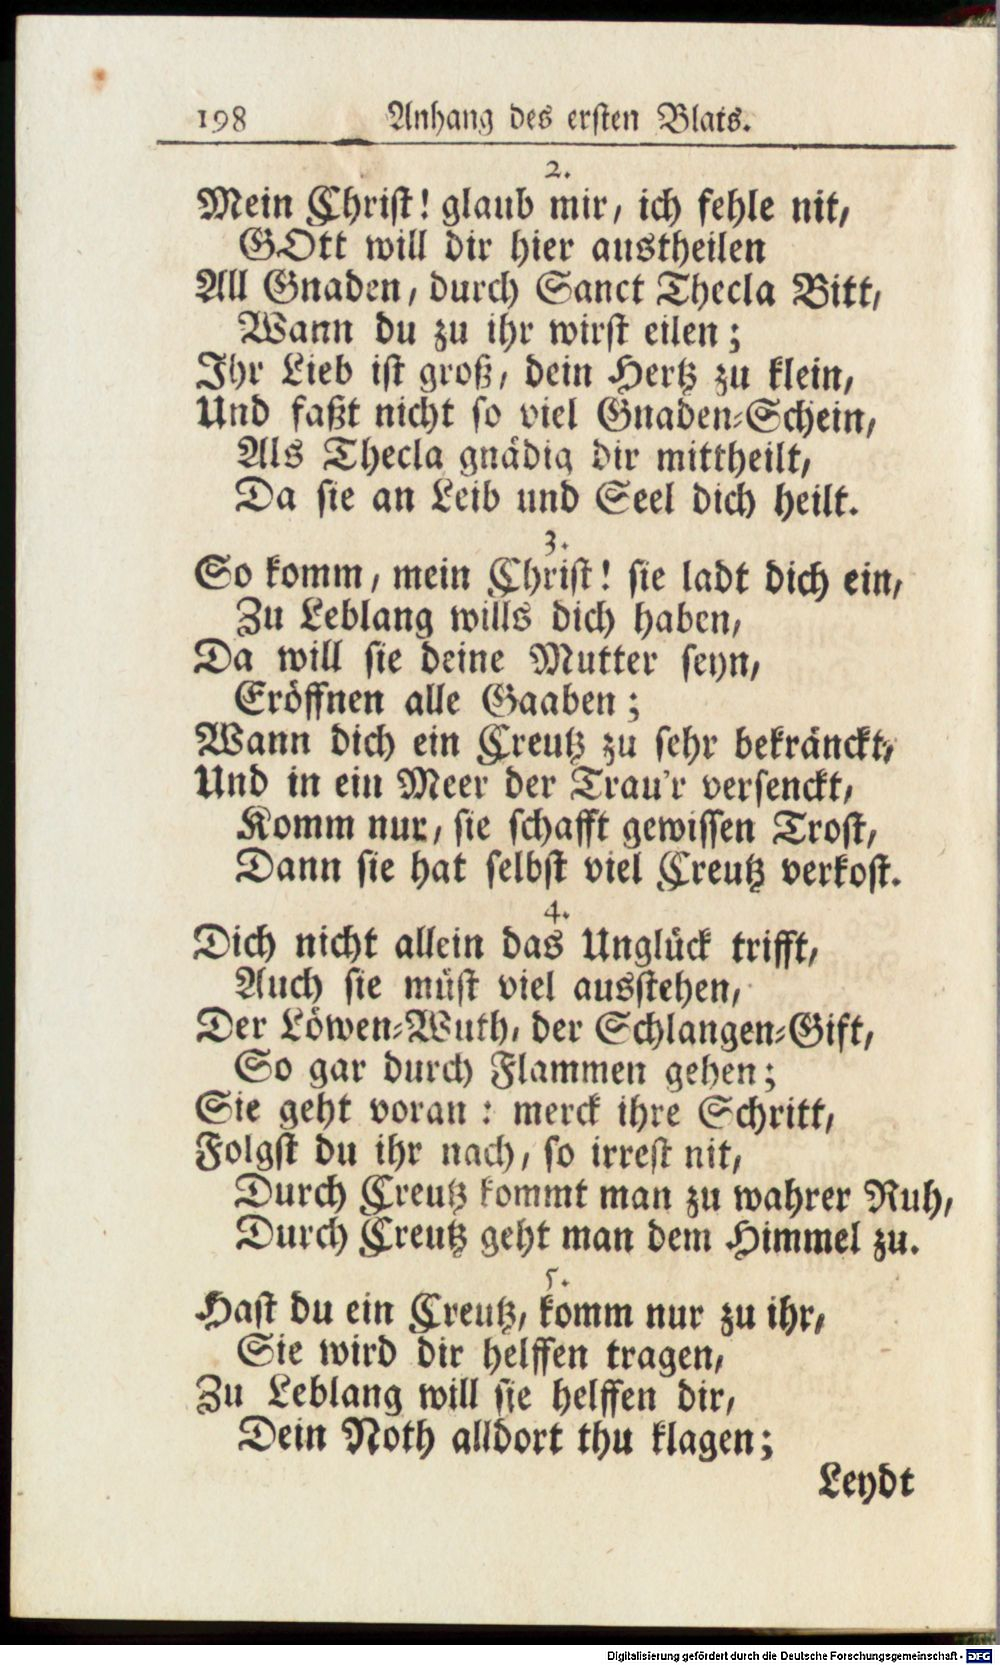 198 Anhang des ersten Blats.
2.
Mein Christ! glaub mir, ich fehle nit,
GOtt will dir hier austheilen
All Gnaden, durch Sanct Thecla Bitt,
Wann du zu ihr wirst eilen;
Ihr Lieb ist groß, dein Hertz zu klein,
Und faßt nicht so viel Gnaden-Schein,
Als Thecla gnädig dir mittheilt,
Da sie an Leib und Seel dich heilt.
3.
So komm, mein Christ! sie ladt dich ein,
Zu Leblang wills dich haben,
Da will sie deine Mutter seyn,
Eröffnen alle Gaaben;
Wann dich ein Creutz zu sehr bekränckt,
Und in ein Meer der Trau'r versenckt,
Komm nur, sie schafft gewissen Trost,
Dann sie hat selbst viel Creutz verkost.
4.
Dich nicht allein das Unglück trifft,
Auch sie müst viel ausstehen,
Der Löwen-Wuth, der Schlangen-Gift,
So gar durch Flammen gehen;
Sie geht voran: merck ihre Schritt,
Folgst du ihr nach, so irrest nit,
Durch Creutz kommt man zu wahrer Ruh,
Durch Creutz geht man dem Himmel zu.
5.
Hast du ein Creutz, komm nur zu ihr,
Sie wird dir helffen tragen,
Zu Leblang will sie helffen dir,
Dein Noth alldort thu klagen;
Leydt
Digitalisierung gefördert durch die Deutsche Forschungsgemeinschaft - DFG